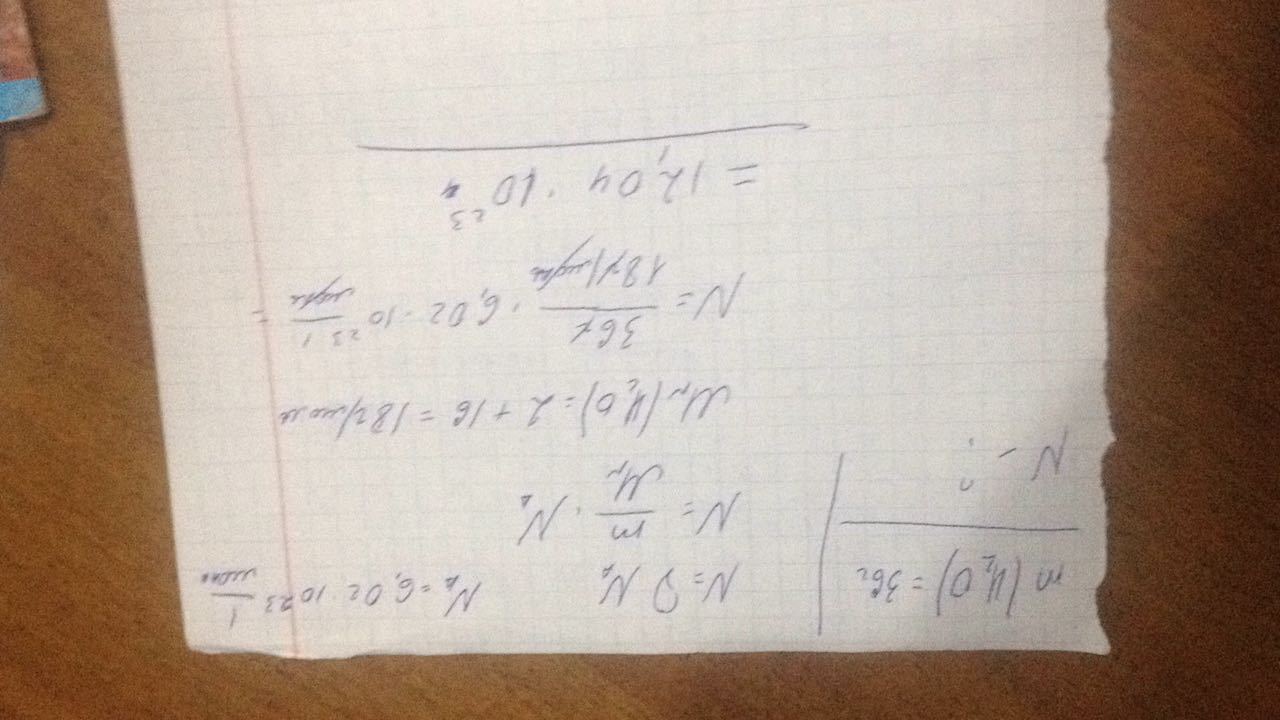 m(H₂O) = 36г
N - ?
N = ν N_A   N_A = 6,02 10²³ 1/моль
N = m/Mr · N_A
Mr(H₂O) = 2 + 16 = 18г/моль
N = 36г/18г/моль · 6,02 · 10²³ 1/моль =
= 12,04 · 10²³